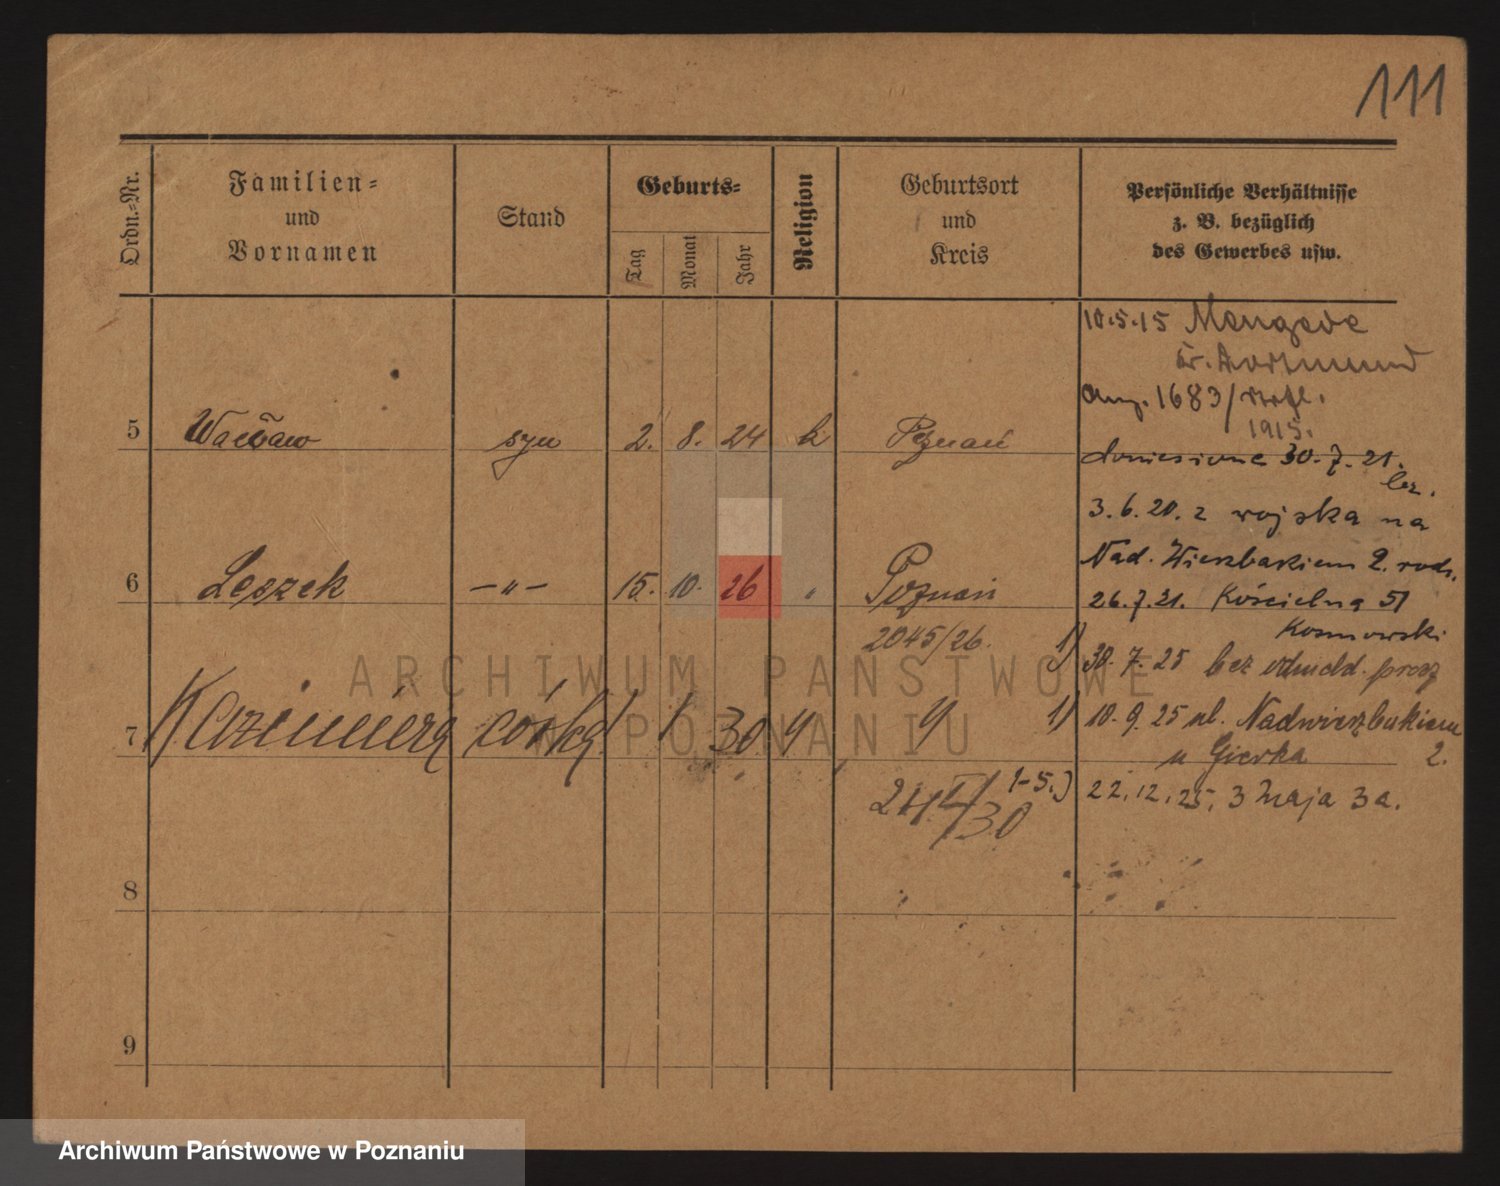 111
Ordn.-Nr.
Familien-
und
Vornamen
Stand
Geburts-
Tag
Monat
Jahr
Religion
Geburtsort
und
Kreis
Persönliche Verhältnisse
z. B. bezüglich
des Gewerbes usw.
10.5.15 Mengede
Kr. Dortmund
1683/
1915.
5 Wacław syn 2. 8. 24 k Poznań
doniesione 30.7.21.
3.6.20. z wojska na
Nad. Wierzbakiem 2. rodz.
6 Leszek —„— 15. 10. 26 „ Poznań
26.7.21. Kościelna 51
Kosmowski
2045/26.
1) 30.7.25 bez
7 Kazimiera córka 1 30
1) 10.9.25 ul. Nadwierzbakiem
u Gierka 2.
1-5.) 22.12.25. 3 Maja 3a.
8
9
ARCHIWUM PAŃSTWOWE
W POZNANIU
Archiwum Państwowe w Poznaniu